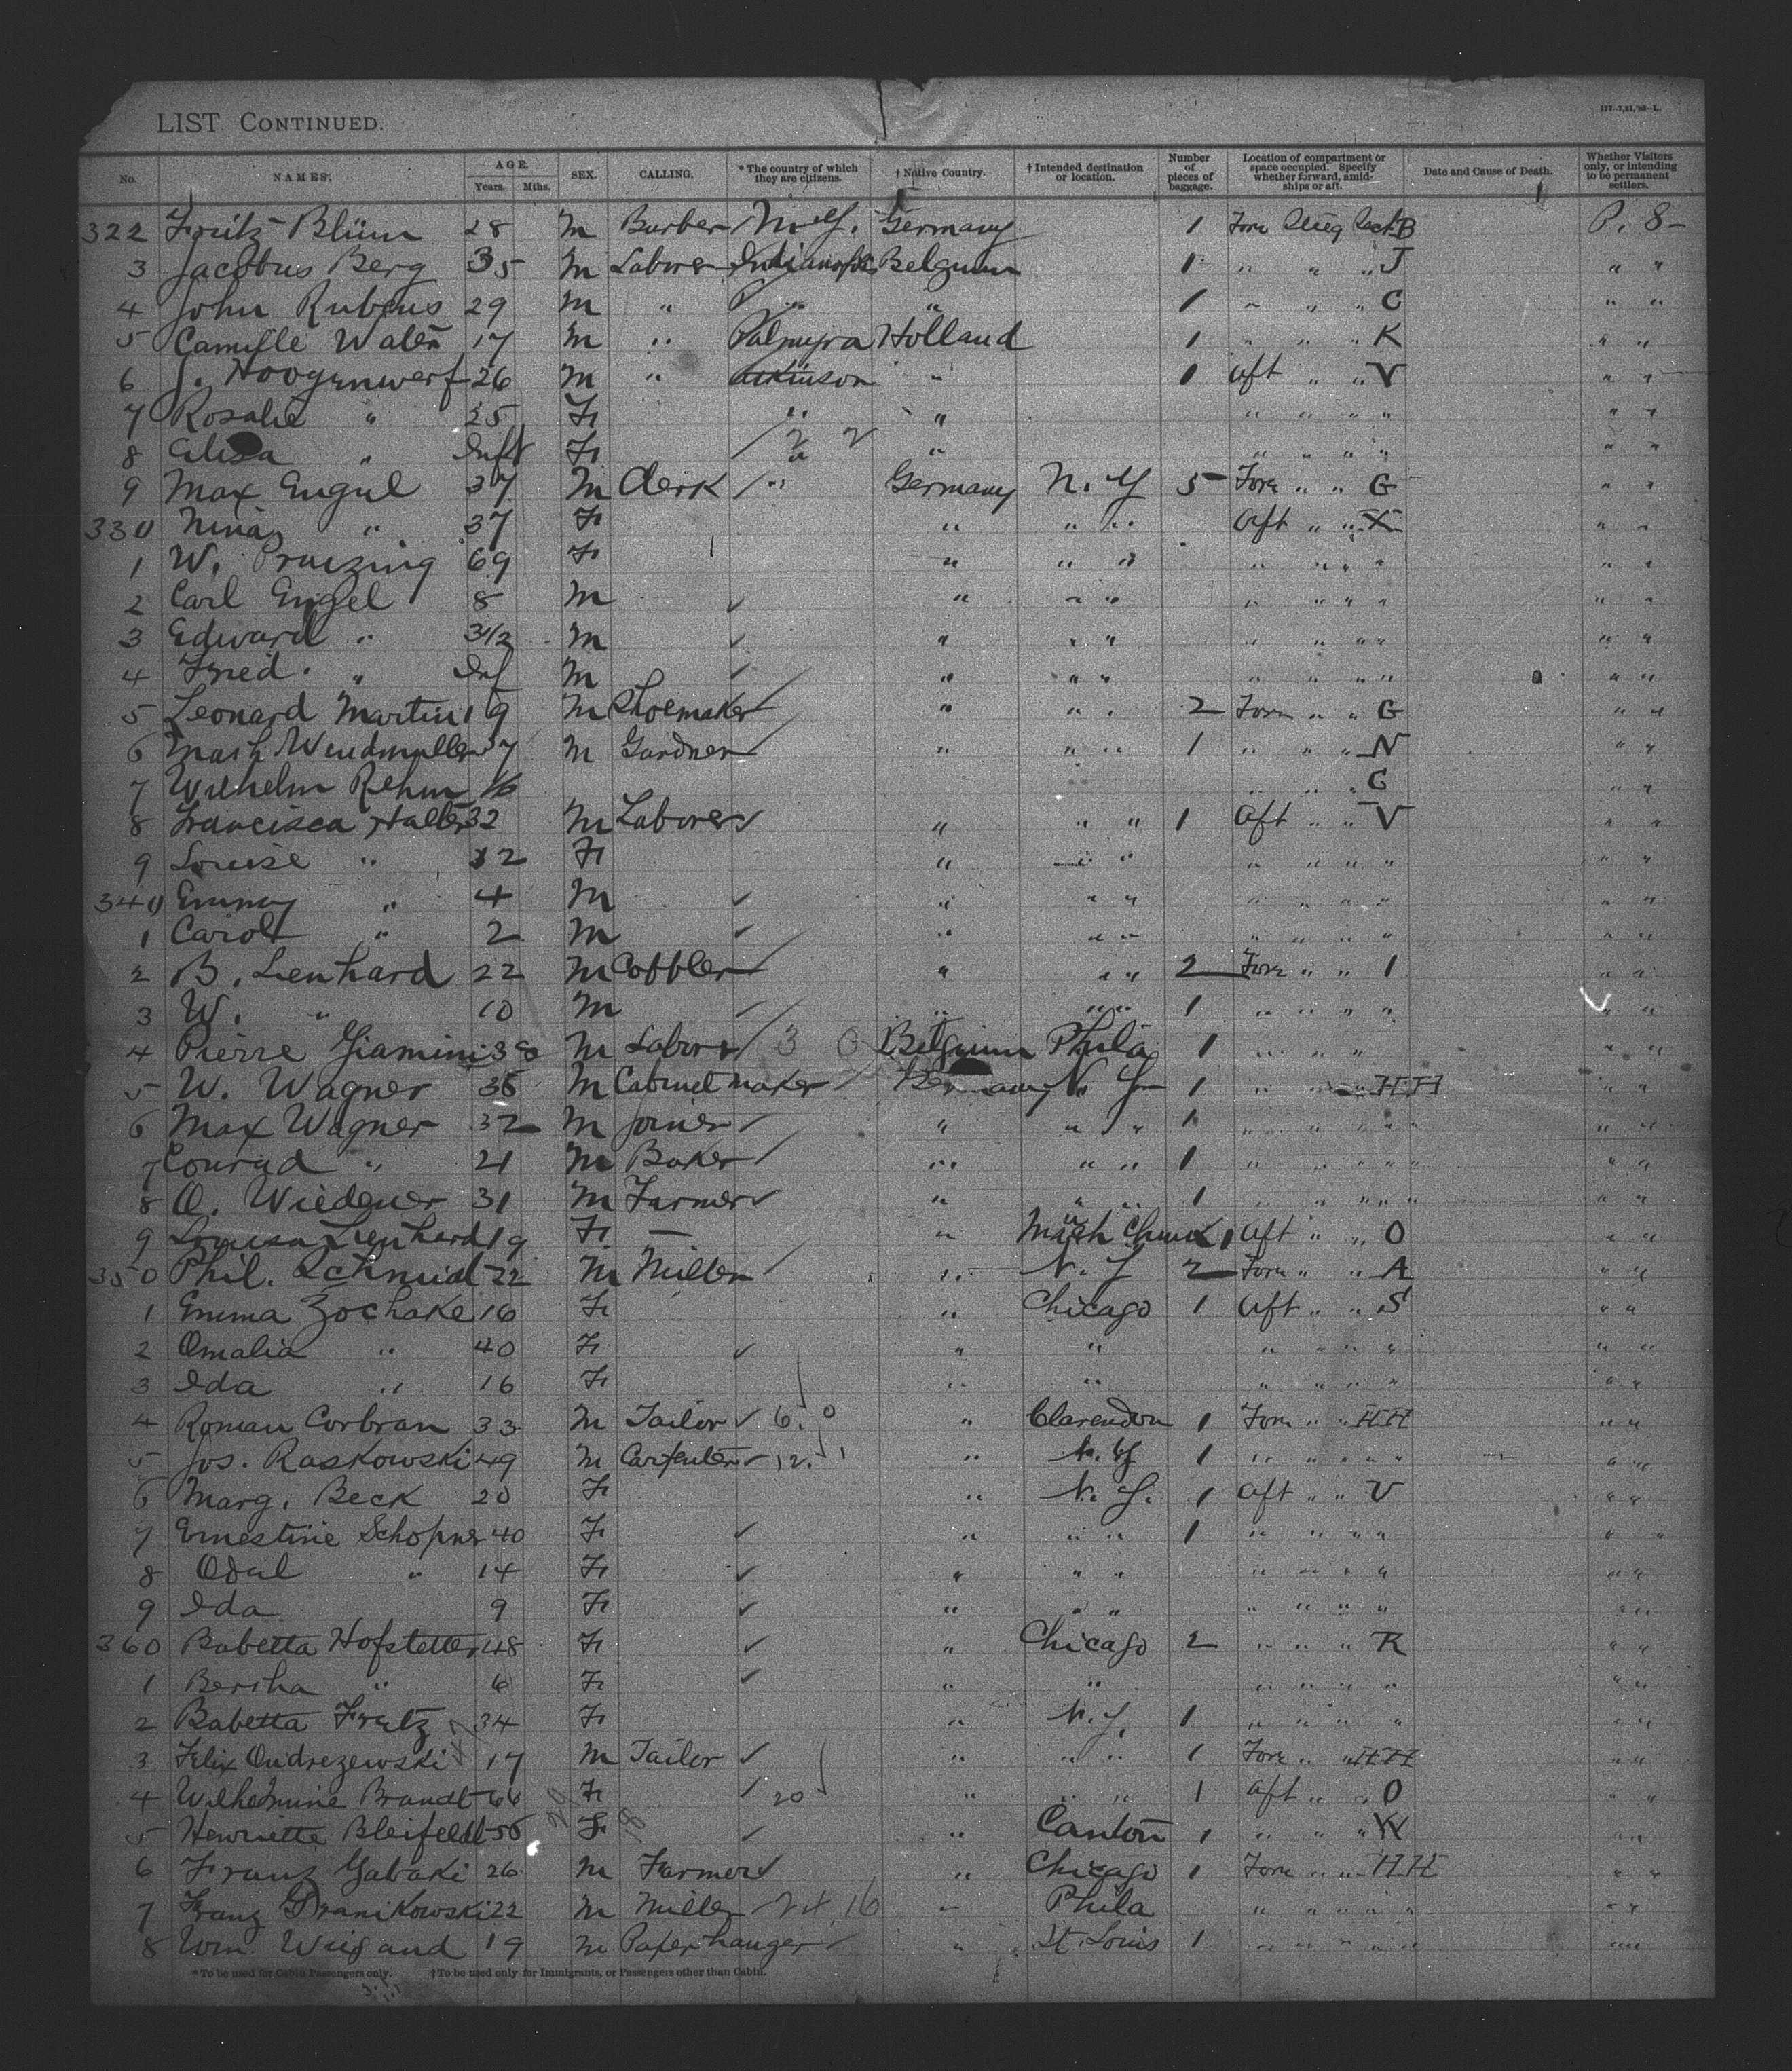 LIST CONTINUED.
No. NAMES. AGE. Years. Mths. SEX. CALLING. * The country of which they are citizens. † Native Country. † Intended destination or location. Number of pieces of baggage. Location of compartment or space occupied. Specify whether forward, amidships or aft. Date and Cause of Death. Whether Visitors only, or intending to be permanent settlers.
322 Fritz Blüm 28 M Barber N.Y. Germany 1 Fore Steig Sect. B P. 8-
3 Jacobus Berg 35 M Laborer Belgium 1 " " " J " "
4 John Rubens 29 M " " " 1 " " " C " "
5 Camille 17 M " Palmyra Holland 1 " " " K " "
6 J. Hoogenwerf 26 M " Atkinson " 1 Aft " " V " "
7 Rosalie " 25 F " " " " " " " "
8 Elisa " Inft F " " " " " " " "
9 Max Engel 37 M Clerk " Germany N.Y 5 Fore " " G " "
330 Nina " 37 F " " " Aft " " X " "
1 W. 69 F " " " " " " " " "
2 Carl Engel 8 M " " " " " " " " "
3 Edward " 3 1/2 M " " " " " " " " "
4 Fred. " Inf M " " " " " " " " "
5 Leonard Martin 19 M Shoemaker " " " 2 Fore " " G " "
6 Windmuller 37 M Gardner " " " 1 " " " N " "
7 Wilhelm Rehm 16 " " " C " "
8 Francisca Haller 32 M Laborer " " " 1 Aft " " V " "
9 Louise " 32 F " " " " " " " " "
340 Emmy " 4 M " " " " " " " " "
1 Carol " 2 M " " " " " " " " "
2 B. Lenhard 22 M Cobbler " " " 2 Fore " " 1 " "
3 W. " 10 M " " " 1 " " " " " "
4 Pierre Giamini M Laborer 3 0 Belgium Phila 1 " " " " "
5 W. Wagner 35 M Cabinet maker Germany N. Y 1 " " " HH " "
6 Max Wagner 32 M Joiner " " " 1 " " " " " "
7 Conrad " 21 M Baker " " " 1 " " " " " "
8 O. Wiedener 31 M Farmer " " " 1 " " " " " "
9 Louisa Lienhard 19 F — " Mauch Chunk 1 Aft " " O " "
350 Phil. Schmidt 22 M Miller " N. Y 2 Fore " " A " "
1 Emma Zochake 16 F " Chicago 1 Aft " " S " "
2 Amalia " 40 F " " " " " " " "
3 Ida " 16 F " " " " " " " "
4 Roman Corbran 33 M Tailor 6. 0 " Clarendon 1 Fore " " HH " "
5 Jos. Raskowski 49 M Carpenter 12. 1 " N.Y 1 " " " " " "
6 Marg. Beck 20 F " N. Y. 1 Aft " " V " "
7 Ernestine Schopner 40 F " " " 1 " " " " " "
8 " 14 F " " " " " " " " "
9 Ida 9 F " " " " " " " " "
360 Babetta Hofstetter 48 F " Chicago 2 " " " R " "
1 Bertha " 6 F " " " " " " " "
2 Babetta 34 F " N.Y. 1 " " " " " "
3 Felix Ondrezewski 17 M Tailor " " " 1 Fore " " HH " "
4 Wilhelmine Brandt 66 F 20 " " " 1 Aft " " O " "
5 Henriette Bleifeldt 56 F " Canton 1 " " " W " "
6 Franz Gabaki 26 M Farmer " Chicago 1 Fore " " HH " "
7 Franz 22 M Miller 16 " Phila " " " " " " "
8 Wm. Weigand 19 M Paperhanger " St. Louis 1 " " " " " "
* To be used for Cabin Passengers only. † To be used only for Immigrants, or Passengers other than Cabin.